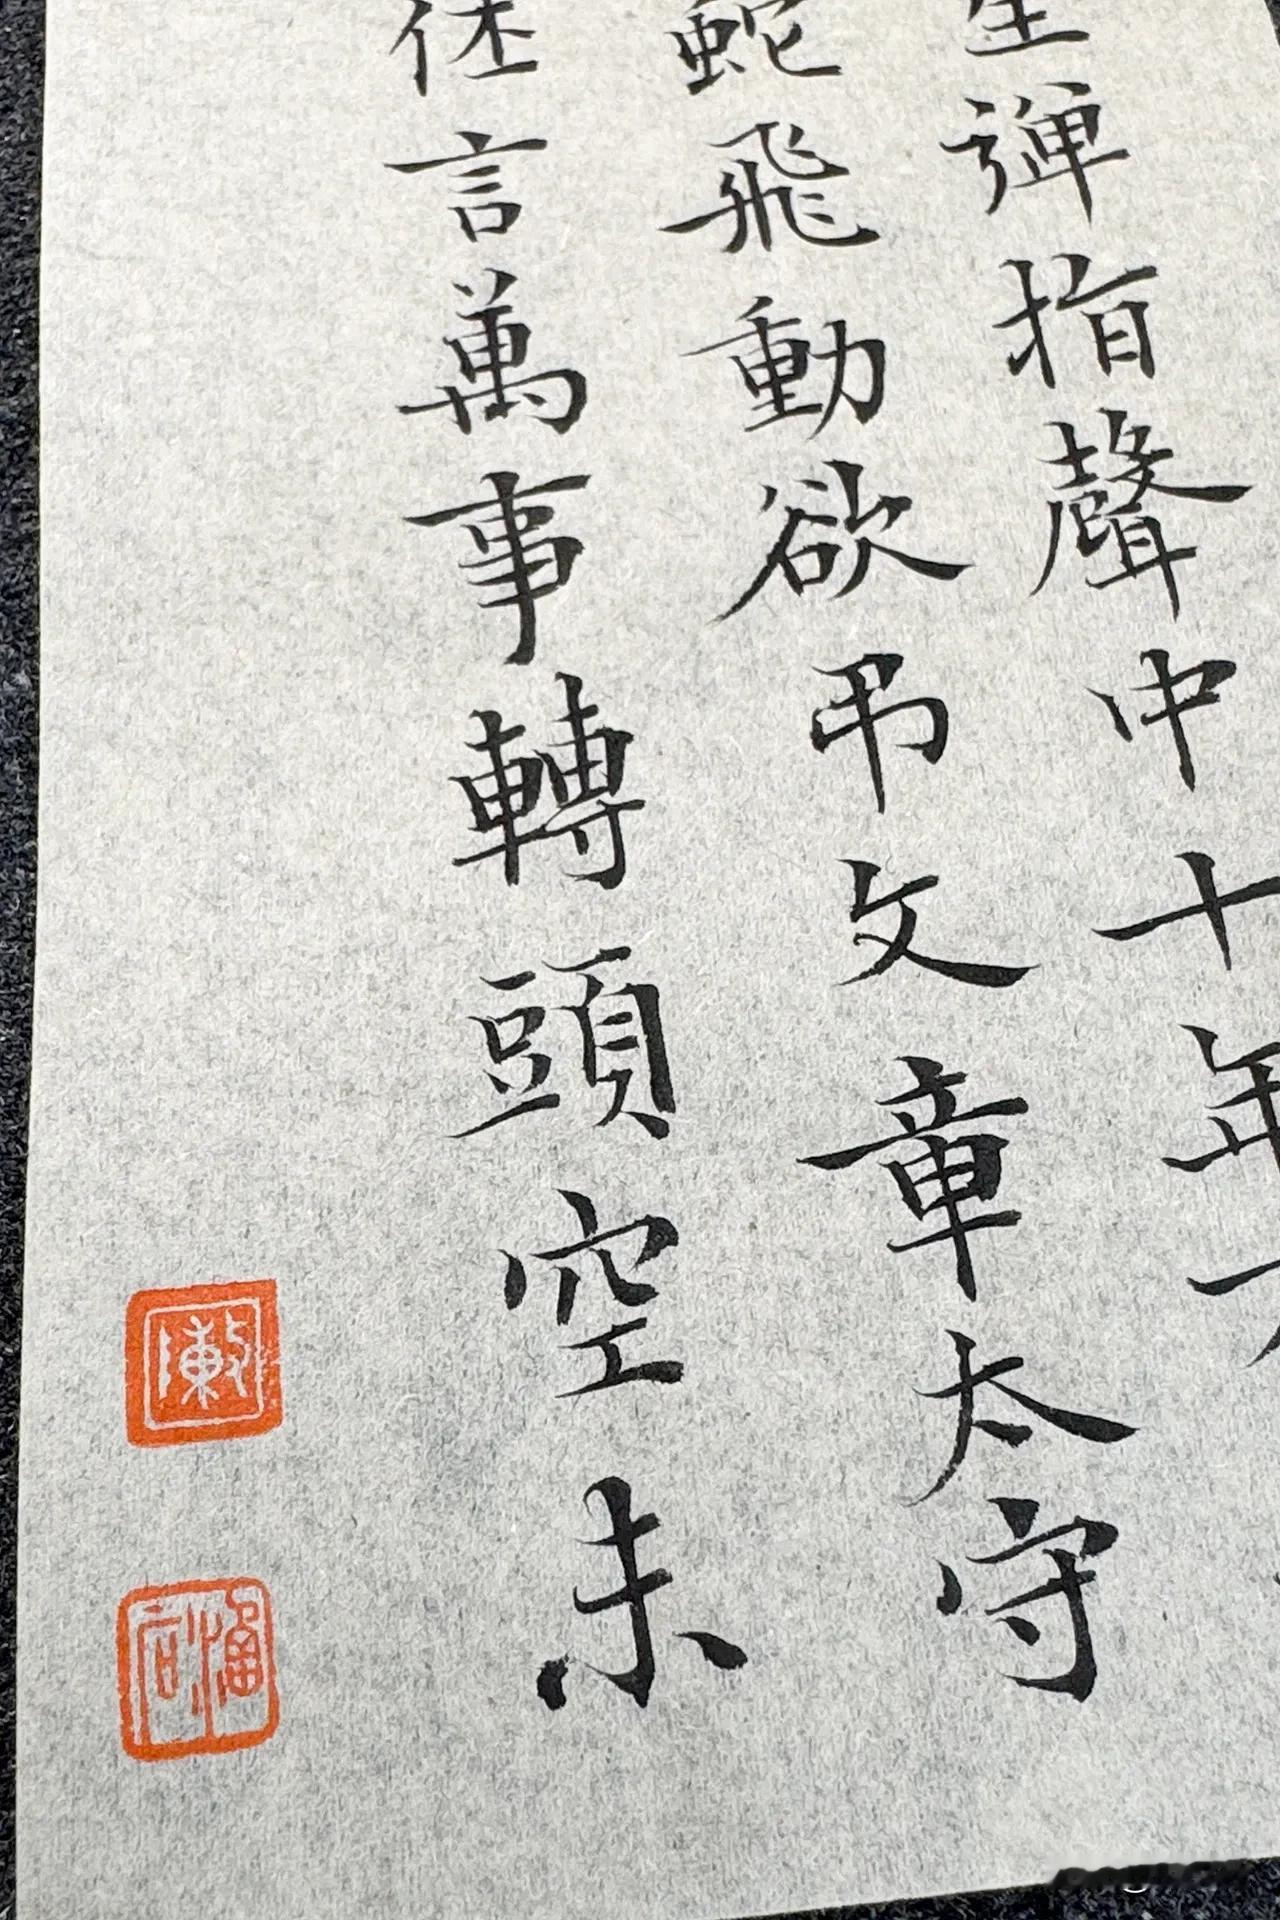 生彈指聲中十年
蛇飛動欲吊文章太守
休言萬事轉頭空未